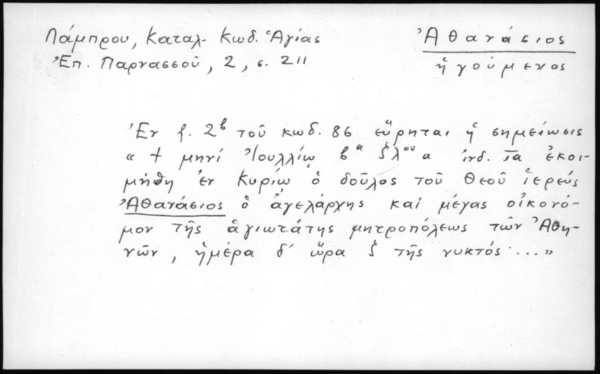 Λάμπρου, Καταλ. Κωδ. Ἁγίας
Ἐπ. Παρνασσοῦ, 2, σ. 211
Ἀθανάσιος
ἡγούμενος
Ἐν f. 2β τοῦ κωδ. 86 εὕρηται ἡ σημείωσις
« + μηνί Ἰουλλίῳ βα ἰνδ. ια ἐκοι-
μήθη ἐν Κυρίῳ ὁ δοῦλος τοῦ Θεοῦ ἱερεύς
Ἀθανάσιος ὁ ἀγελάρχης καί μέγας οἰκονό-
μον τῆς ἁγιωτάτης μητροπόλεως τῶν Ἀθη-
νῶν, ἡμέρα δ' ὥρα ϛ τῆς νυκτός ...»